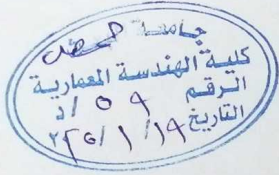 جامعة حمص
كلية الهندسة المعمارية
الرقم ٥٩ / د
التاريخ ١٩ / ١ / ٢٠٢٥